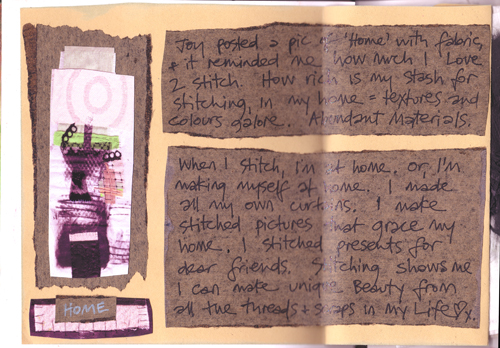 Joy posted a pic of 'Home' with fabric,
& it reminded me how much I Love
2 stitch. How rich is my stash for
stitching, in my home = textures and
colours galore. Abundant Materials.
When I stitch, I'm at home. or, I'm
making myself at home. I made
all my own curtains. I make
stitched pictures that grace my
home. I stitched presents for
dear friends. Stitching shows me
I can make unique Beauty from
all the threads + scraps in my Life♡x.
HOME